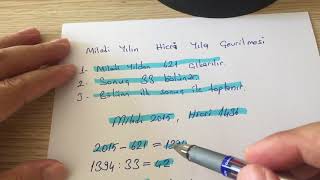 Miladi Yılın Hicri Yıla Çevrilmesi
1- Miladi Yıldan 621 Çıkarılır.
2- Sonuç 33 bölünür.
3- Bölüm ilk sonuç ile toplanır.
Miladi 2015, Hicri 1436
2015-621=1394
1394:33=42